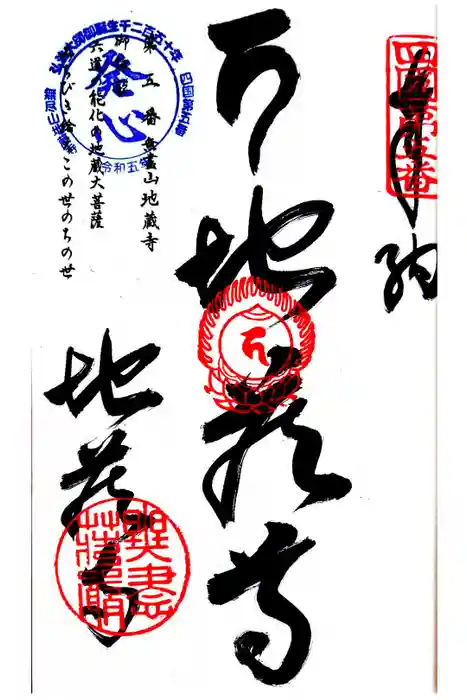 四国第五番
奉納
地蔵尊
弘法大師御誕生千二百五十年
四国第五番
発心
令和五年
無尽山地蔵寺
第五番無盡山地蔵寺
御詠歌
六道の能化の地蔵大菩薩
みちびき給へこの世のちの世
地蔵寺